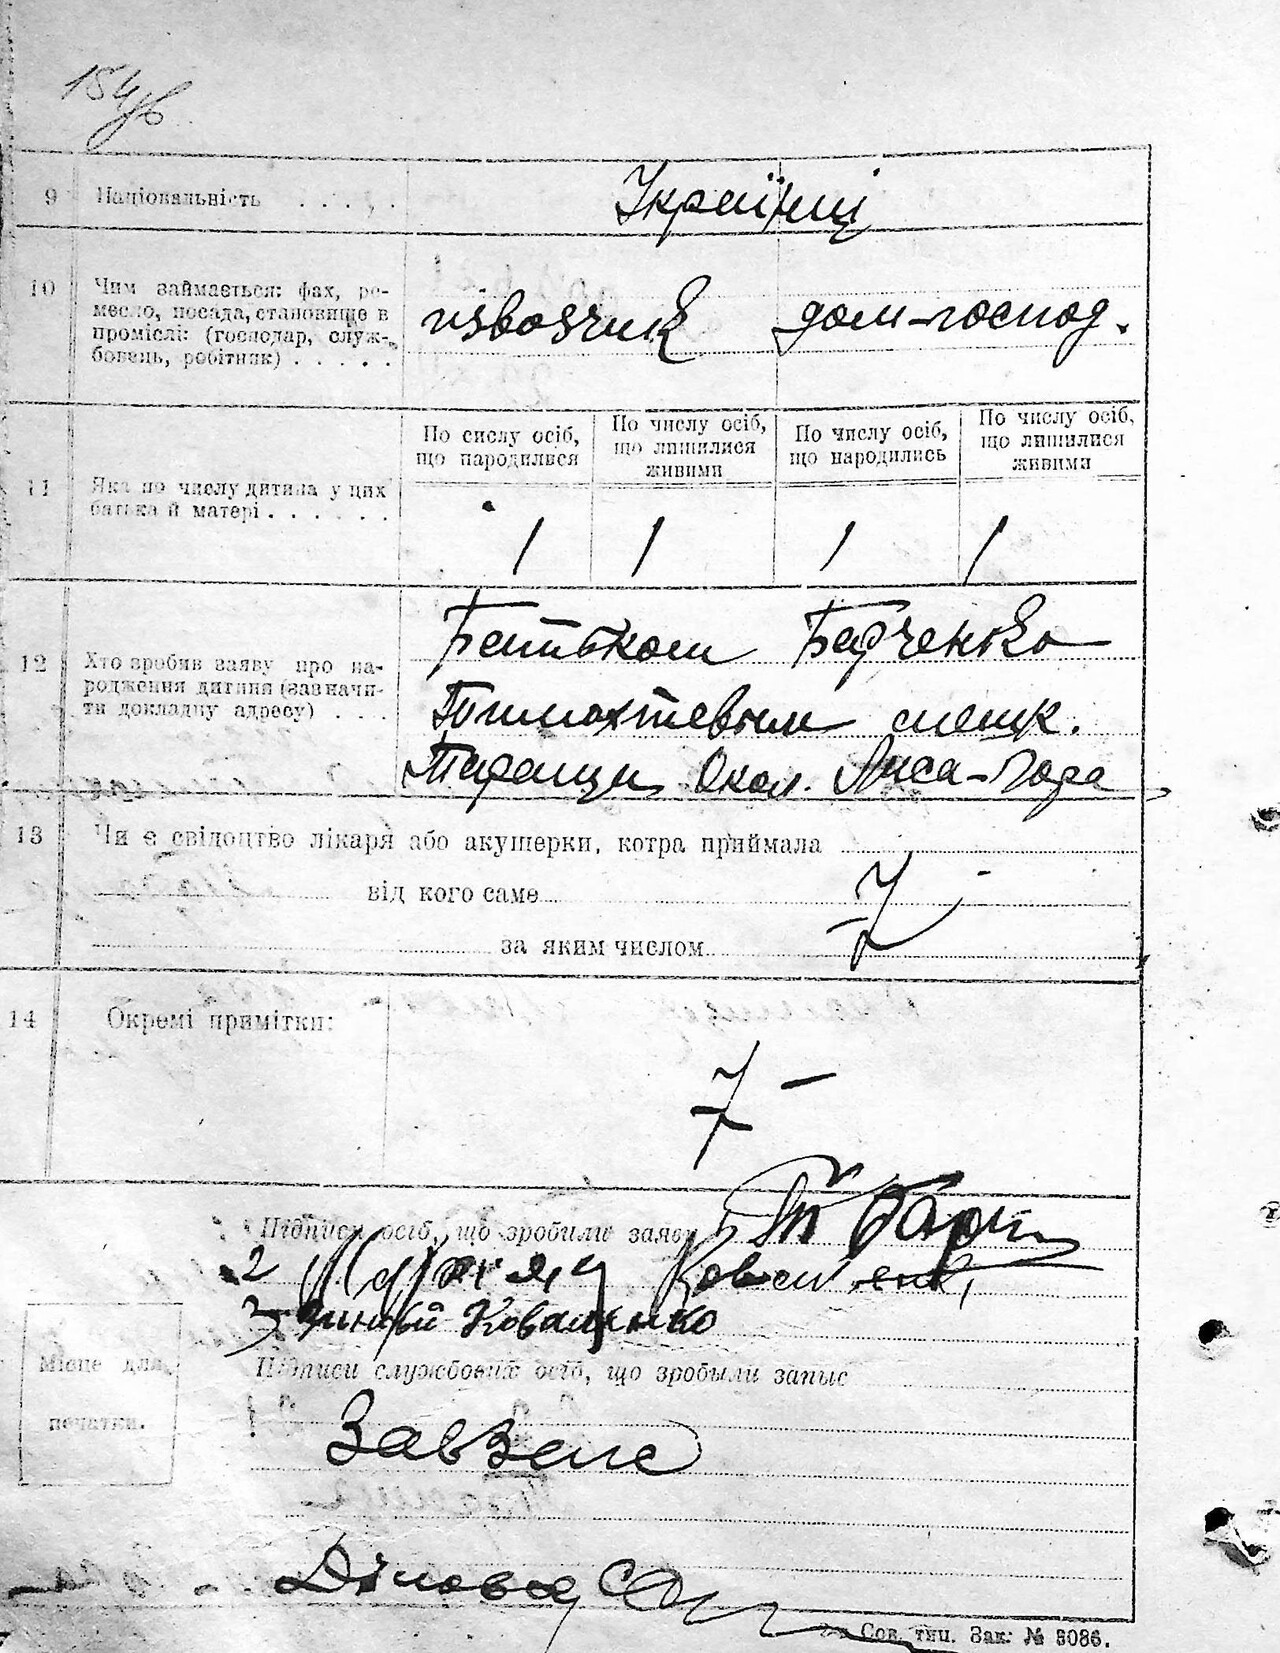 154 зв
9 Національність . . . . .
Українці
10 Чим займається: фах, ре-
месло, посада, становище в
проміслі: (господар, служ-
бовець, робітник) . . . . .
візвозчик дом-господ.
По числу осіб,
що народилися
По числу осіб,
що лишилися
живими
По числу осіб,
що народились
По числу осіб,
що лишилися
живими
11 Яка по числу дитина у цих
батька й матері . . . . . .
1 1 1 1
12 Хто зробив заяву про на-
родження дитини (зазначи-
ти докладну адресу) . . .
Батьком Барченко
мешк.
Таращи Окол. Лиса-Гора
13 Чи є свідоцтво лікаря або акушерки, котра приймала
від кого саме
за яким числом
14 Окремі примітки:
Підписи осіб, що зробили заяву
2
3 Зиновый Коваленко
Місце для
печатки.
Підписи службових осіб, що зробыли запыс
Завзагс
Діловод
Сов. тип. Зак. № 3086.